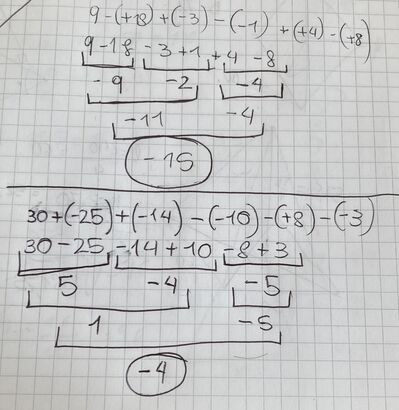 9-(+18)+(-3)-(-1)+(+4)-(+8)
9-18-3+1+4-8
-9 -2 -4
-11 -4
-15
30+(-25)+(-14)-(-10)-(+8)-(-3)
30-25-14+10-8+3
5 -4 -5
1 -5
-4